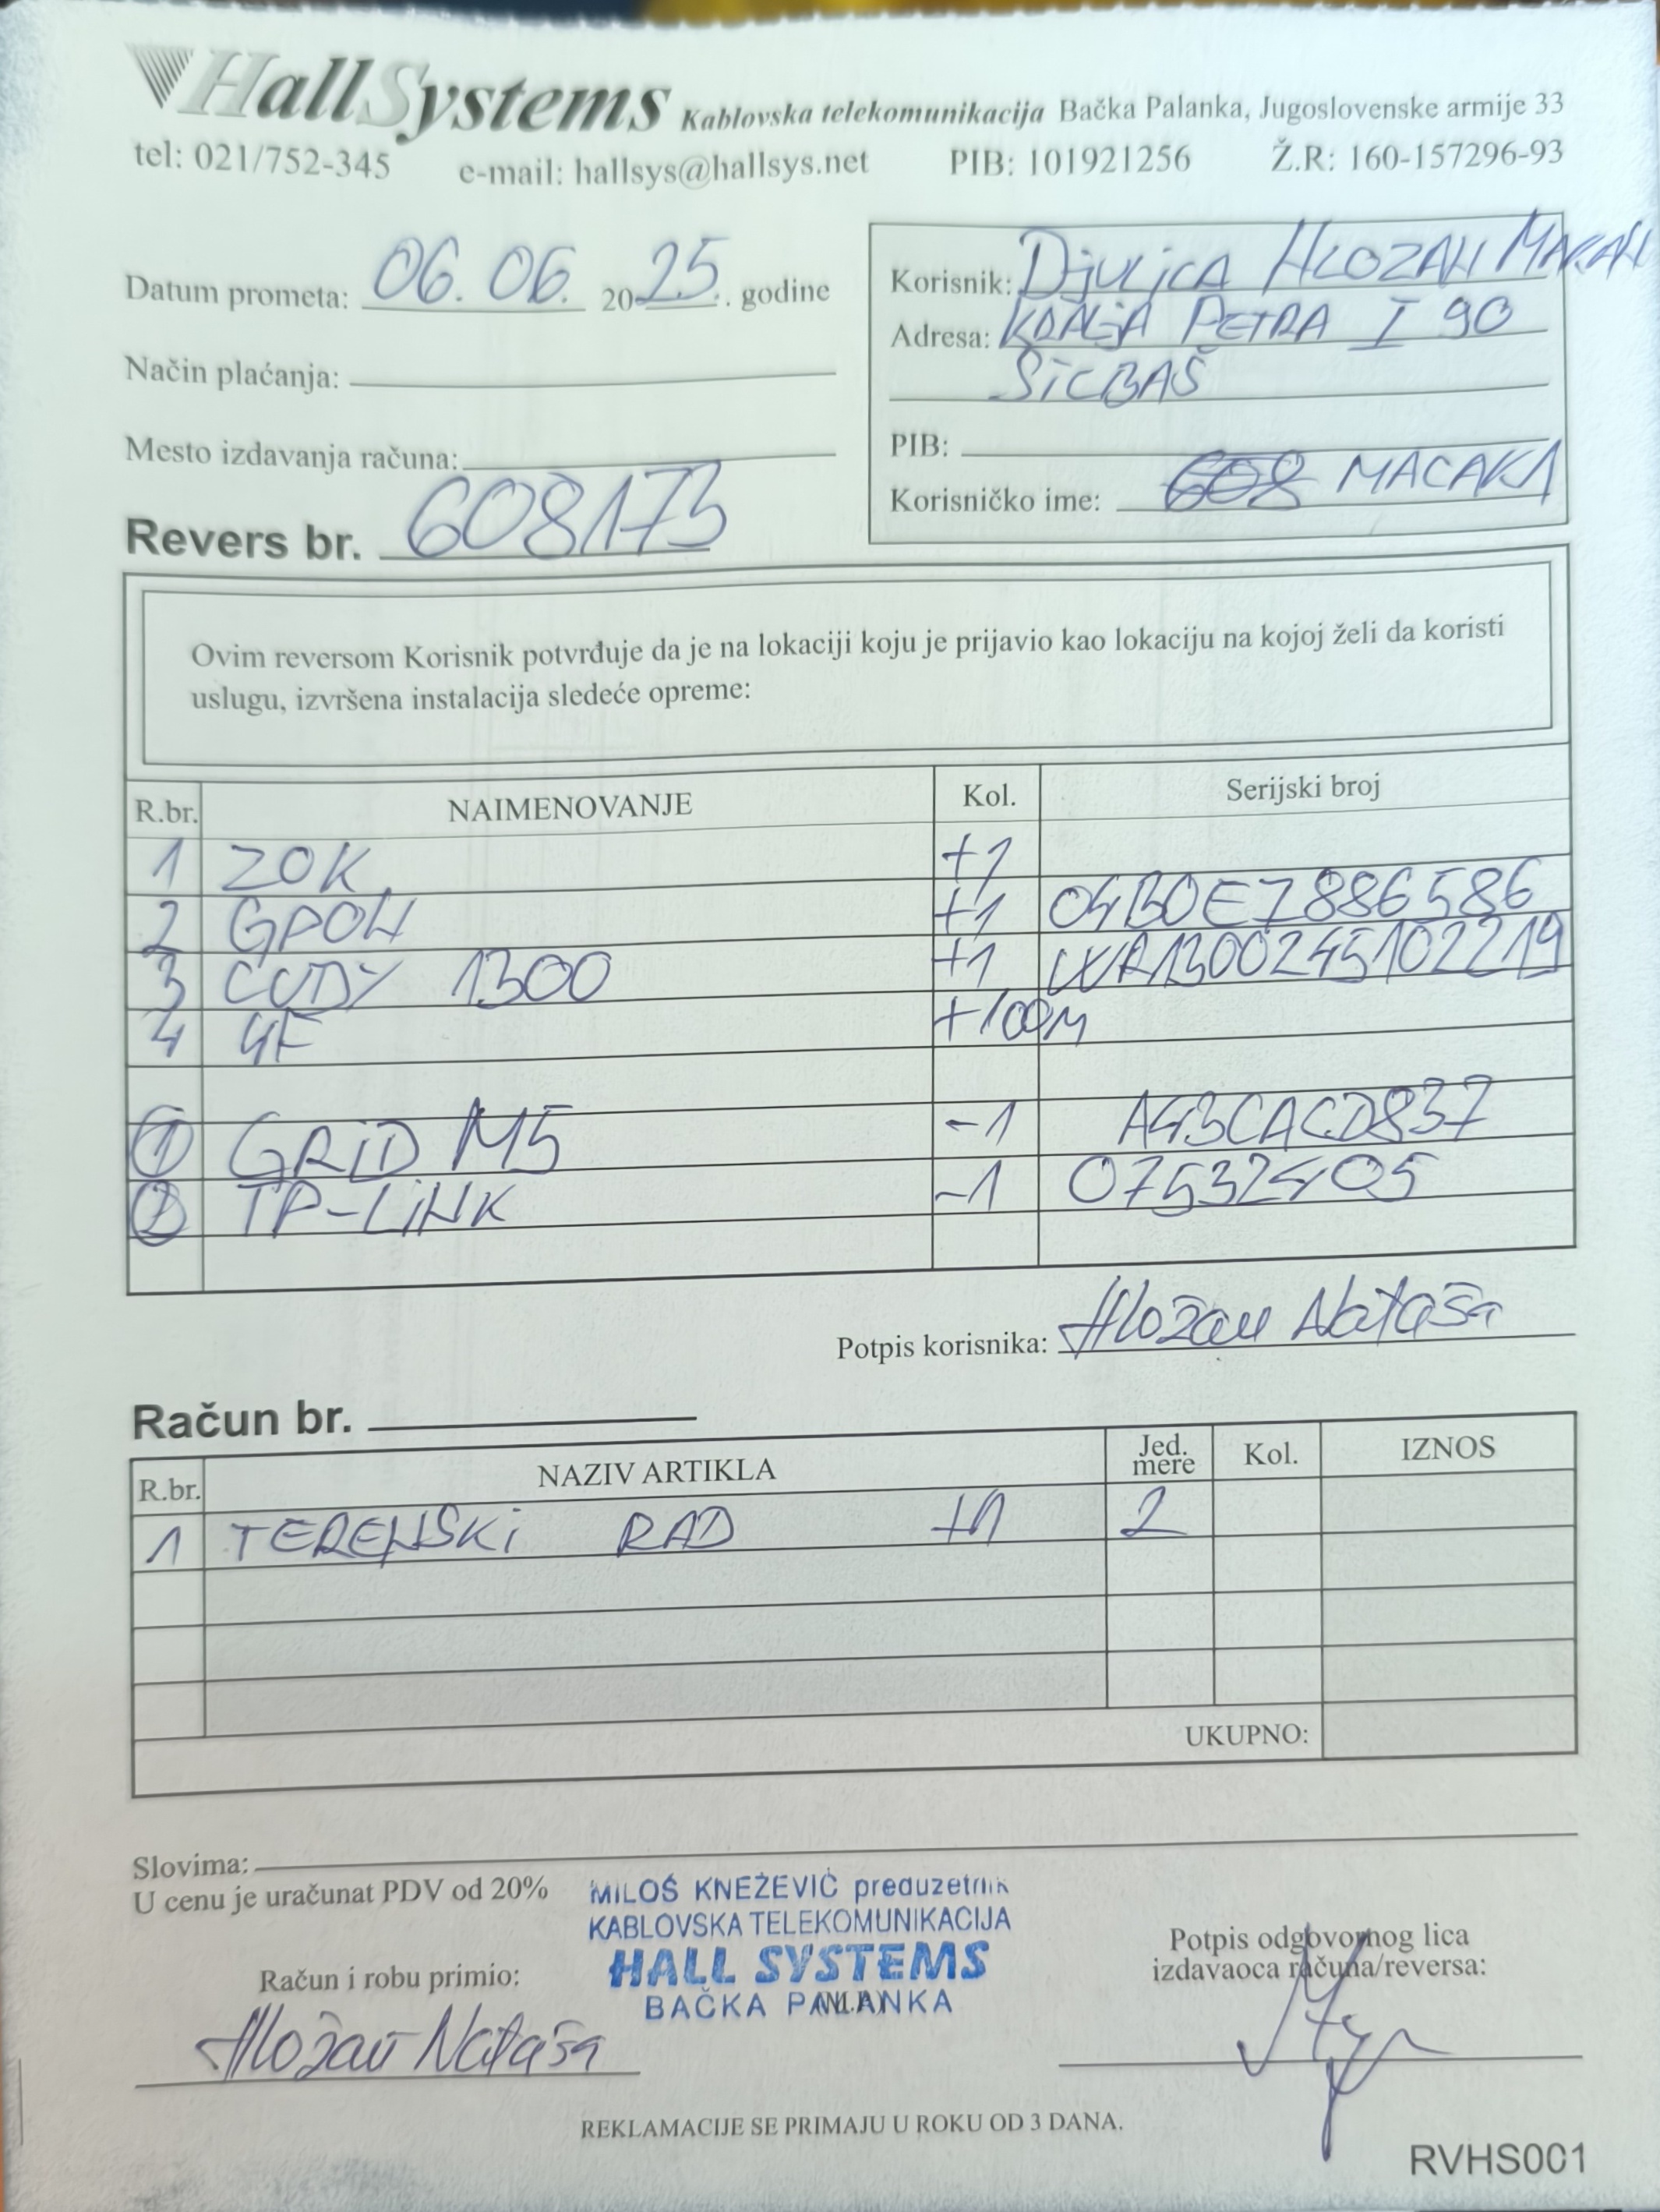 HallSystems Kablovska telekomunikacija Bačka Palanka, Jugoslovenske armije 33
tel: 021/752-345 e-mail: hallsys@hallsys.net PIB: 101921256 Ž.R: 160-157296-93
Datum prometa: 06.06. 2025. godine
Način plaćanja:
Mesto izdavanja računa:
Revers br. 608173
Korisnik: Djuljca HLOZAN
Adresa: KRALJA PETRA I 90
PIB:
Korisničko ime: 608 MACAK1
Ovim reversom Korisnik potvrđuje da je na lokaciji koju je prijavio kao lokaciju na kojoj želi da koristi
uslugu, izvršena instalacija sledeće opreme:
R.br. NAIMENOVANJE Kol. Serijski broj
1 ZOK +1
2 GPON +1 04B0E7886586
3 CUDY 1300 +1 WR1300245102219
4 4F +100M
1 GRID M5 -1 A43CACD837
2 TP-LINK -1 07532405
Potpis korisnika: Hložan Nataša
Račun br.
R.br. NAZIV ARTIKLA Jed. mere Kol. IZNOS
1 TERENSKI RAD +1 2
UKUPNO:
Slovima:
U cenu je uračunat PDV od 20%
MILOŠ KNEŽEVIĆ preduzetnik
KABLOVSKA TELEKOMUNIKACIJA
HALL SYSTEMS
BAČKA PALANKA
Račun i robu primio:
Hložan Nataša
Potpis odgovornog lica
izdavaoca računa/reversa:
REKLAMACIJE SE PRIMAJU U ROKU OD 3 DANA.
RVHS001